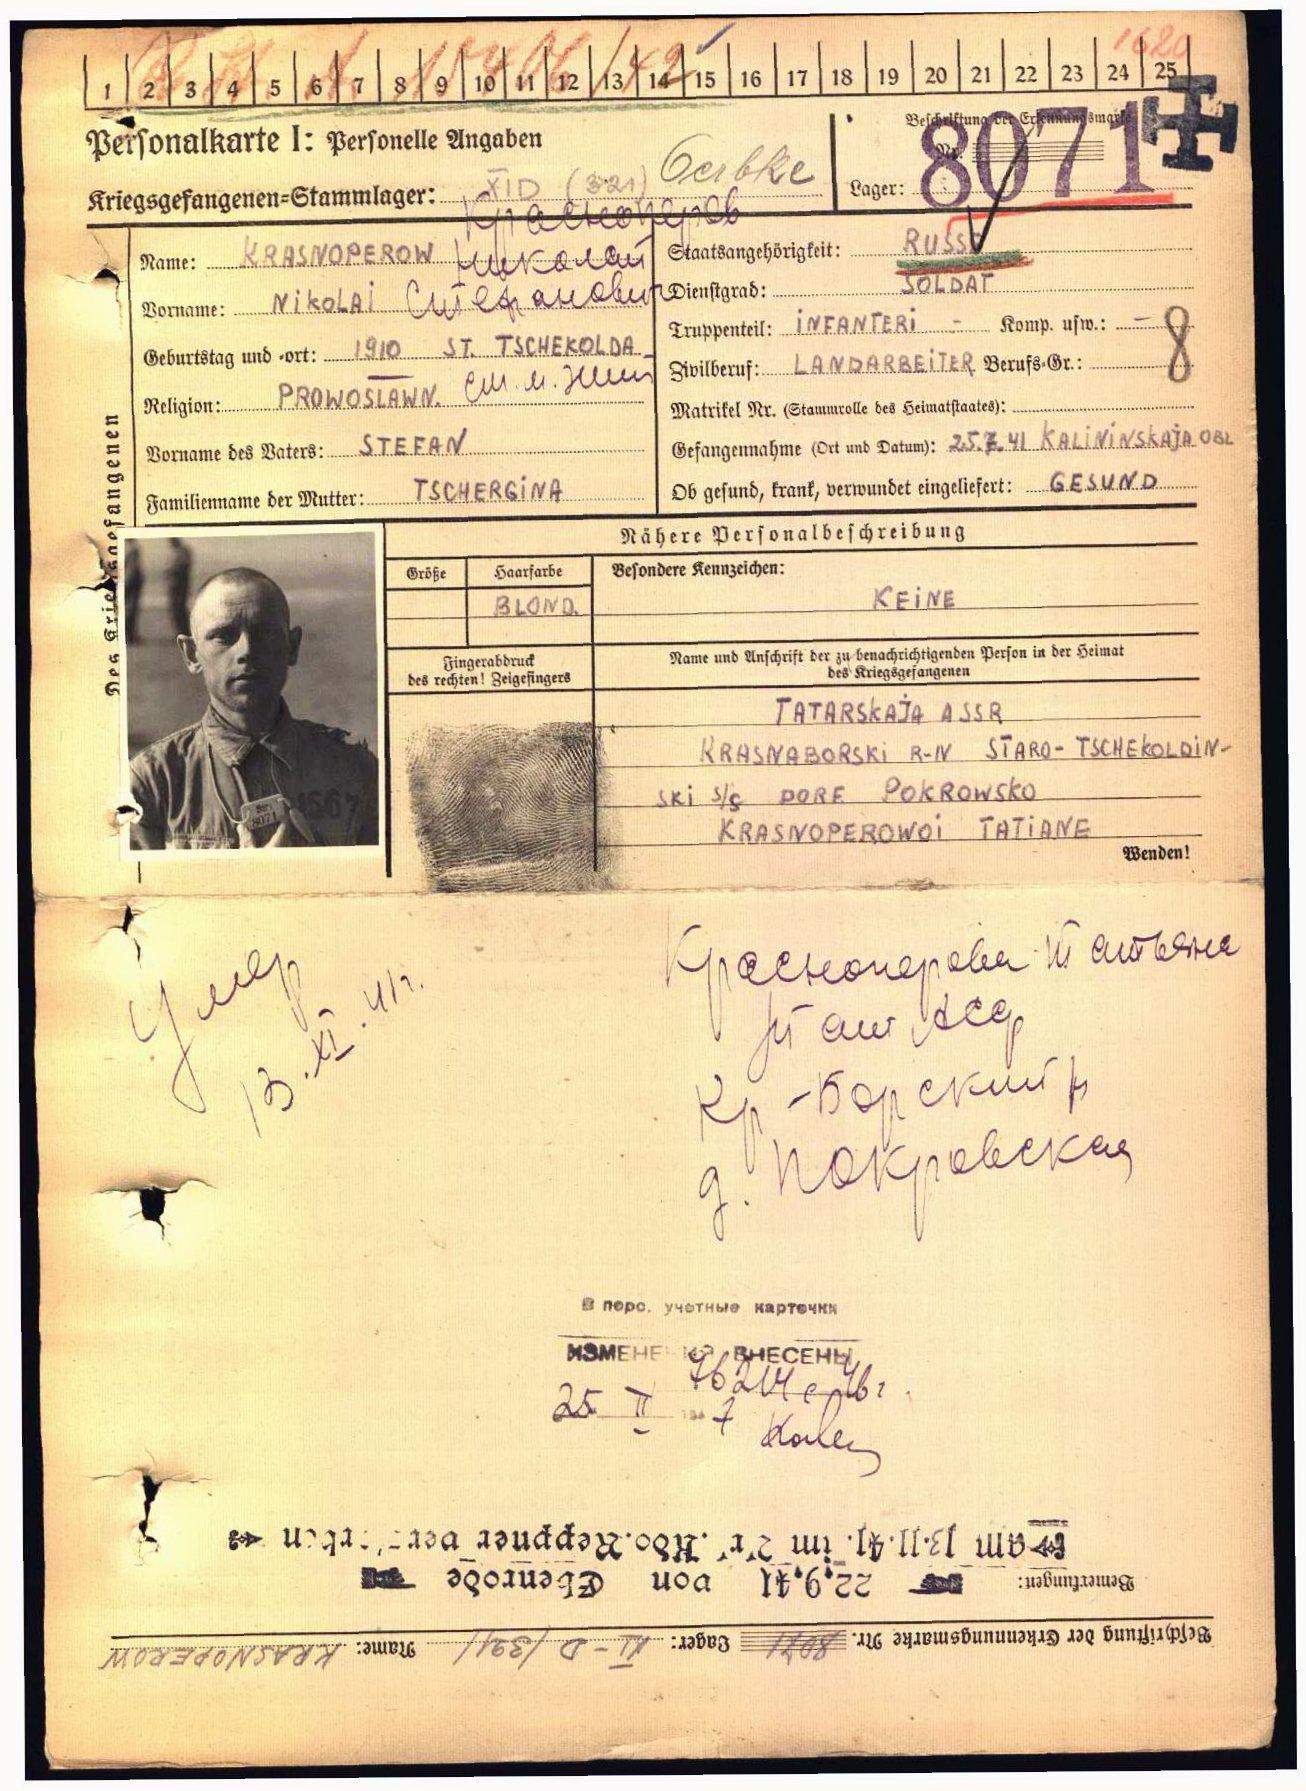 1620
1 2 3 4 5 6 7 8 9 10 11 12 13 14 15 16 17 18 19 20 21 22 23 24 25
Personalkarte I: Personelle Angaben
Beschriftung der Erkennungsmarke
Nr. 8071
Kriegsgefangenen-Stammlager: XI D (321) Oerbke
Lager:
Красноперов
Николай
Степанович
Name: KRASNOPEROW
Vorname: NIKOLAI
Geburtstag und -ort: 1910 ST. TSCHEKOLDA
Religion: PROWOSLAWN.
Vorname des Vaters: STEFAN
Familienname der Mutter: TSCHERGINA
Staatsangehörigkeit: RUSSE
Dienstgrad: SOLDAT
Truppenteil: INFANTERI - Komp. usw.: -
Zivilberuf: LANDARBEITER Berufs-Gr.: 8
Matrikel Nr. (Stammrolle des Heimatstaates):
Gefangennahme (Ort und Datum): 25.7.41 KALININSKAJA OBL
Ob gesund, krank, verwundet eingeliefert: GESUND
Des Kriegsgefangenen
Nähere Personalbeschreibung
Größe Haarfarbe Besondere Kennzeichen:
BLOND. KEINE
Fingerabdruck
des rechten! Zeigefingers
Name und Anschrift der zu benachrichtigenden Person in der Heimat
des Kriegsgefangenen
TATARSKAJA ASSR
KRASNABORSKI R-N STARO-TSCHEKOLDIN-
SKI S/S DORF POKROWSKO
KRASNOPEROWOI TATIANE
Wenden!
8071
Умер
13.XI.41г.
Красноперова Татьяна
Тат АССР
Кр-Борский р
д. Покровская
В перс. учетные карточки
ИЗМЕНЕНИЯ ВНЕСЕНЫ
25 II 1947
am 13.11.41. im Kr. Kdo. Reppner verstorben
Bemerkungen: 22.9.41 von Ebenrode
Beschriftung der Erkennungsmarke Nr. 8071 Lager: XI-D /321/ Name: KRASNOPEROW